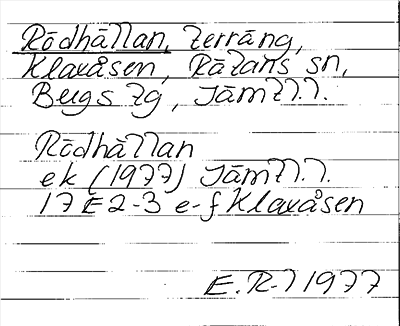 Rödhällan, terräng,
Klaxåsen, Rätans sn,
Bergs tg, Jämtl.l.
Rödhällan
ek (1977) Jämtl.l.
17 E 2-3 e-f Klaxåsen
E.R-l 1977